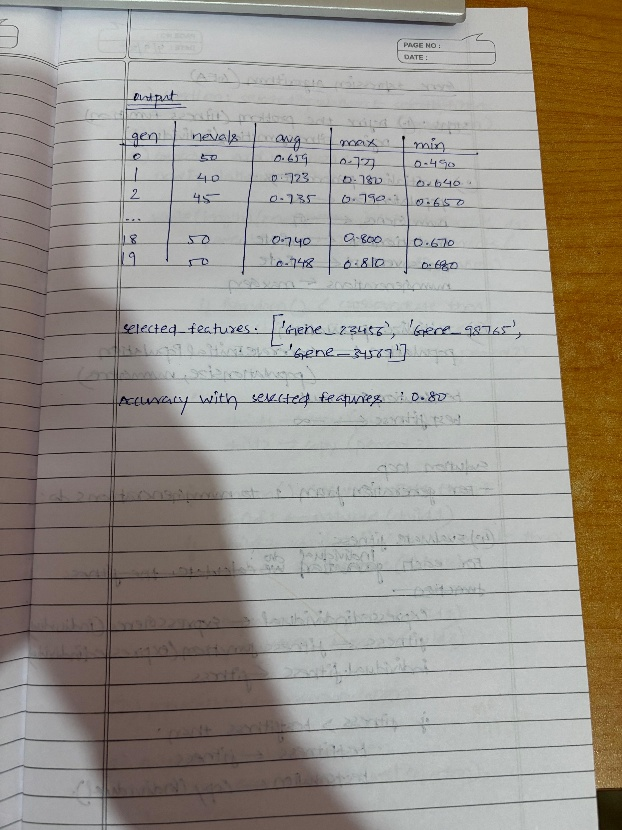 PAGE NO :
DATE :
output
gen nevals avg max min
0 50 0.659 0.721 0.490
1 40 0.723 0.780 0.640
2 45 0.735 0.790 0.650
...
18 50 0.740 0.800 0.670
19 50 0.748 0.810 0.680
selected_features. ['Gene_23456', 'Gene_98765',
'Gene_34567']
Accuracy with selected features : 0.80